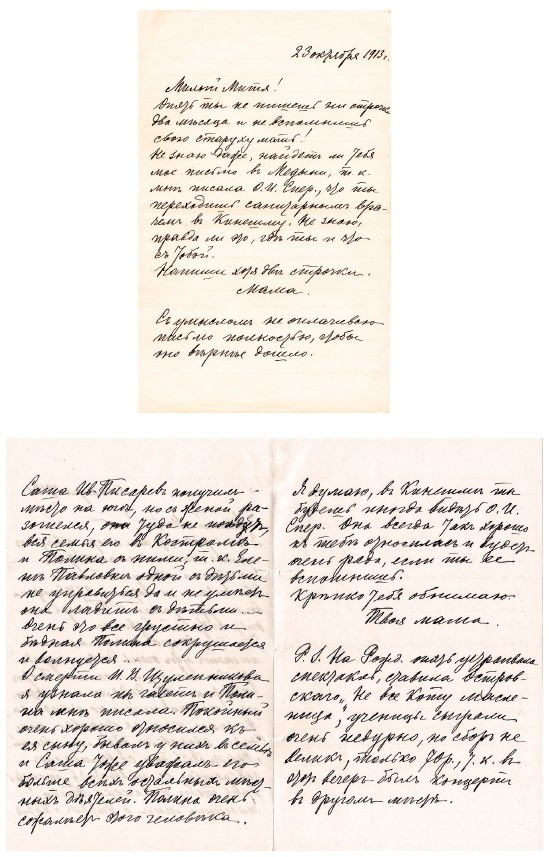 23 октября 1913 г.
Милый Митя!
Опять ты не пишешь ни строчки
два мѣсяца и не вспомнишь
свою старуху мать!
Не знаю даже, найдетъ ли тебя
мое письмо въ Медыни, т. к.
мнѣ писала О. И. Спер., что ты
переходишь санитарнымъ вра-
чемъ въ Кинешму. Не знаю,
правда ли это, гдѣ ты и что
съ тобой.
Напиши хотя двѣ строчки.
Мама.
Съ умысломъ не оплачиваю
письмо полностью, чтобы
оно вѣрнѣе дошло.
Саша Ив. Писаревъ получилъ
мѣсто на югѣ, но съ женой ра-
зошелся, она туда не поѣдетъ,
вся семья его въ Костромѣ
и Полина съ ними, т. к. Еле-
нѣ Павловнѣ одной съ дѣтьми
не управиться да и не умѣетъ
она ладить съ дѣтьми...
Очень это все грустно и
бѣдная Полина сокрушается
и волнуется...
О смерти И. В. Щулепникова
я узнала изъ газетъ и Поли-
на мнѣ писала. Покойный
очень хорошо относился къ
ея сыну, бывалъ у нихъ въ семьѣ
и Саша тоже уважалъ его
больше всѣхъ остальныхъ мѣст-
ныхъ дѣятелей. Полина очень
сожалѣетъ этого человѣка..
Я думаю, въ Кинешмѣ ты
будешь иногда видать О. И.
Спер. Она всегда такъ хорошо
къ тебѣ относилась и будетъ
очень рада, если ты ее
вспомнишь.
Крѣпко тебя обнимаю.
Твоя мама.
P. S. На Рожд. опять устроивала
спектакль, ставила Остров-
скаго, "Не все коту масле-
ница", ученицы сыграли
очень недурно, но сборъ не
великъ, только т. к. въ
этотъ вечеръ былъ концертъ
въ другомъ мѣстѣ.